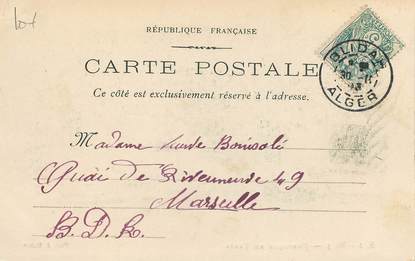 lot
RÉPUBLIQUE FRANÇAISE
CARTE POSTALE
Ce côté est exclusivement réservé à l'adresse.
BLIDAH
ALGER
Madame
Quai de Rive neuve 49
Marseille
B. D. R.